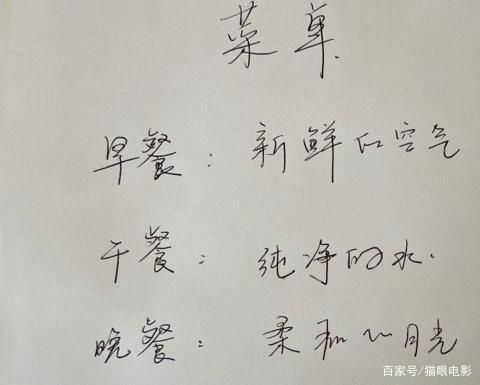 菜单.
早餐: 新鲜的空气
午餐: 纯净的水.
晚餐: 柔和的月光
百家号/猫眼电影